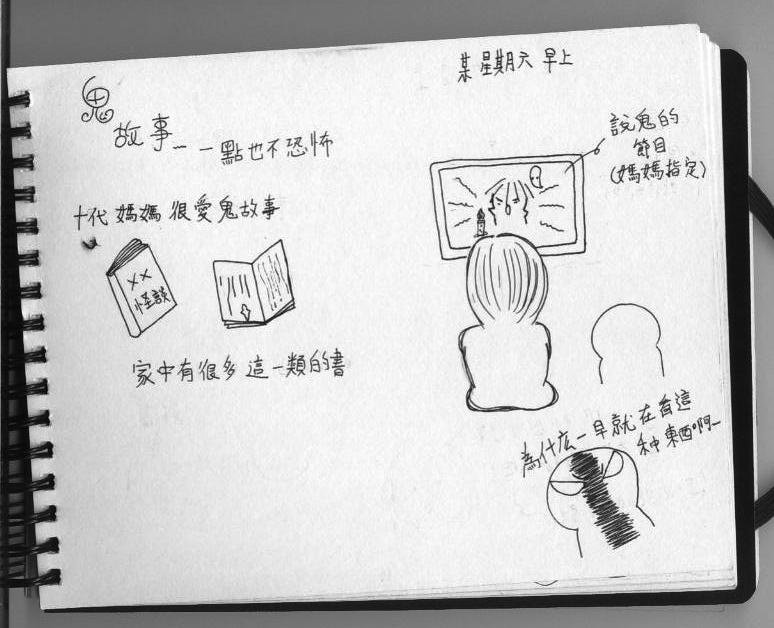 鬼
故事
一點也不恐怖
十代媽媽很愛鬼故事
××
怪談
家中有很多這一類的書
某星期六早上
說鬼的
節目
(媽媽指定)
為什么一早就在看這
种東西啊